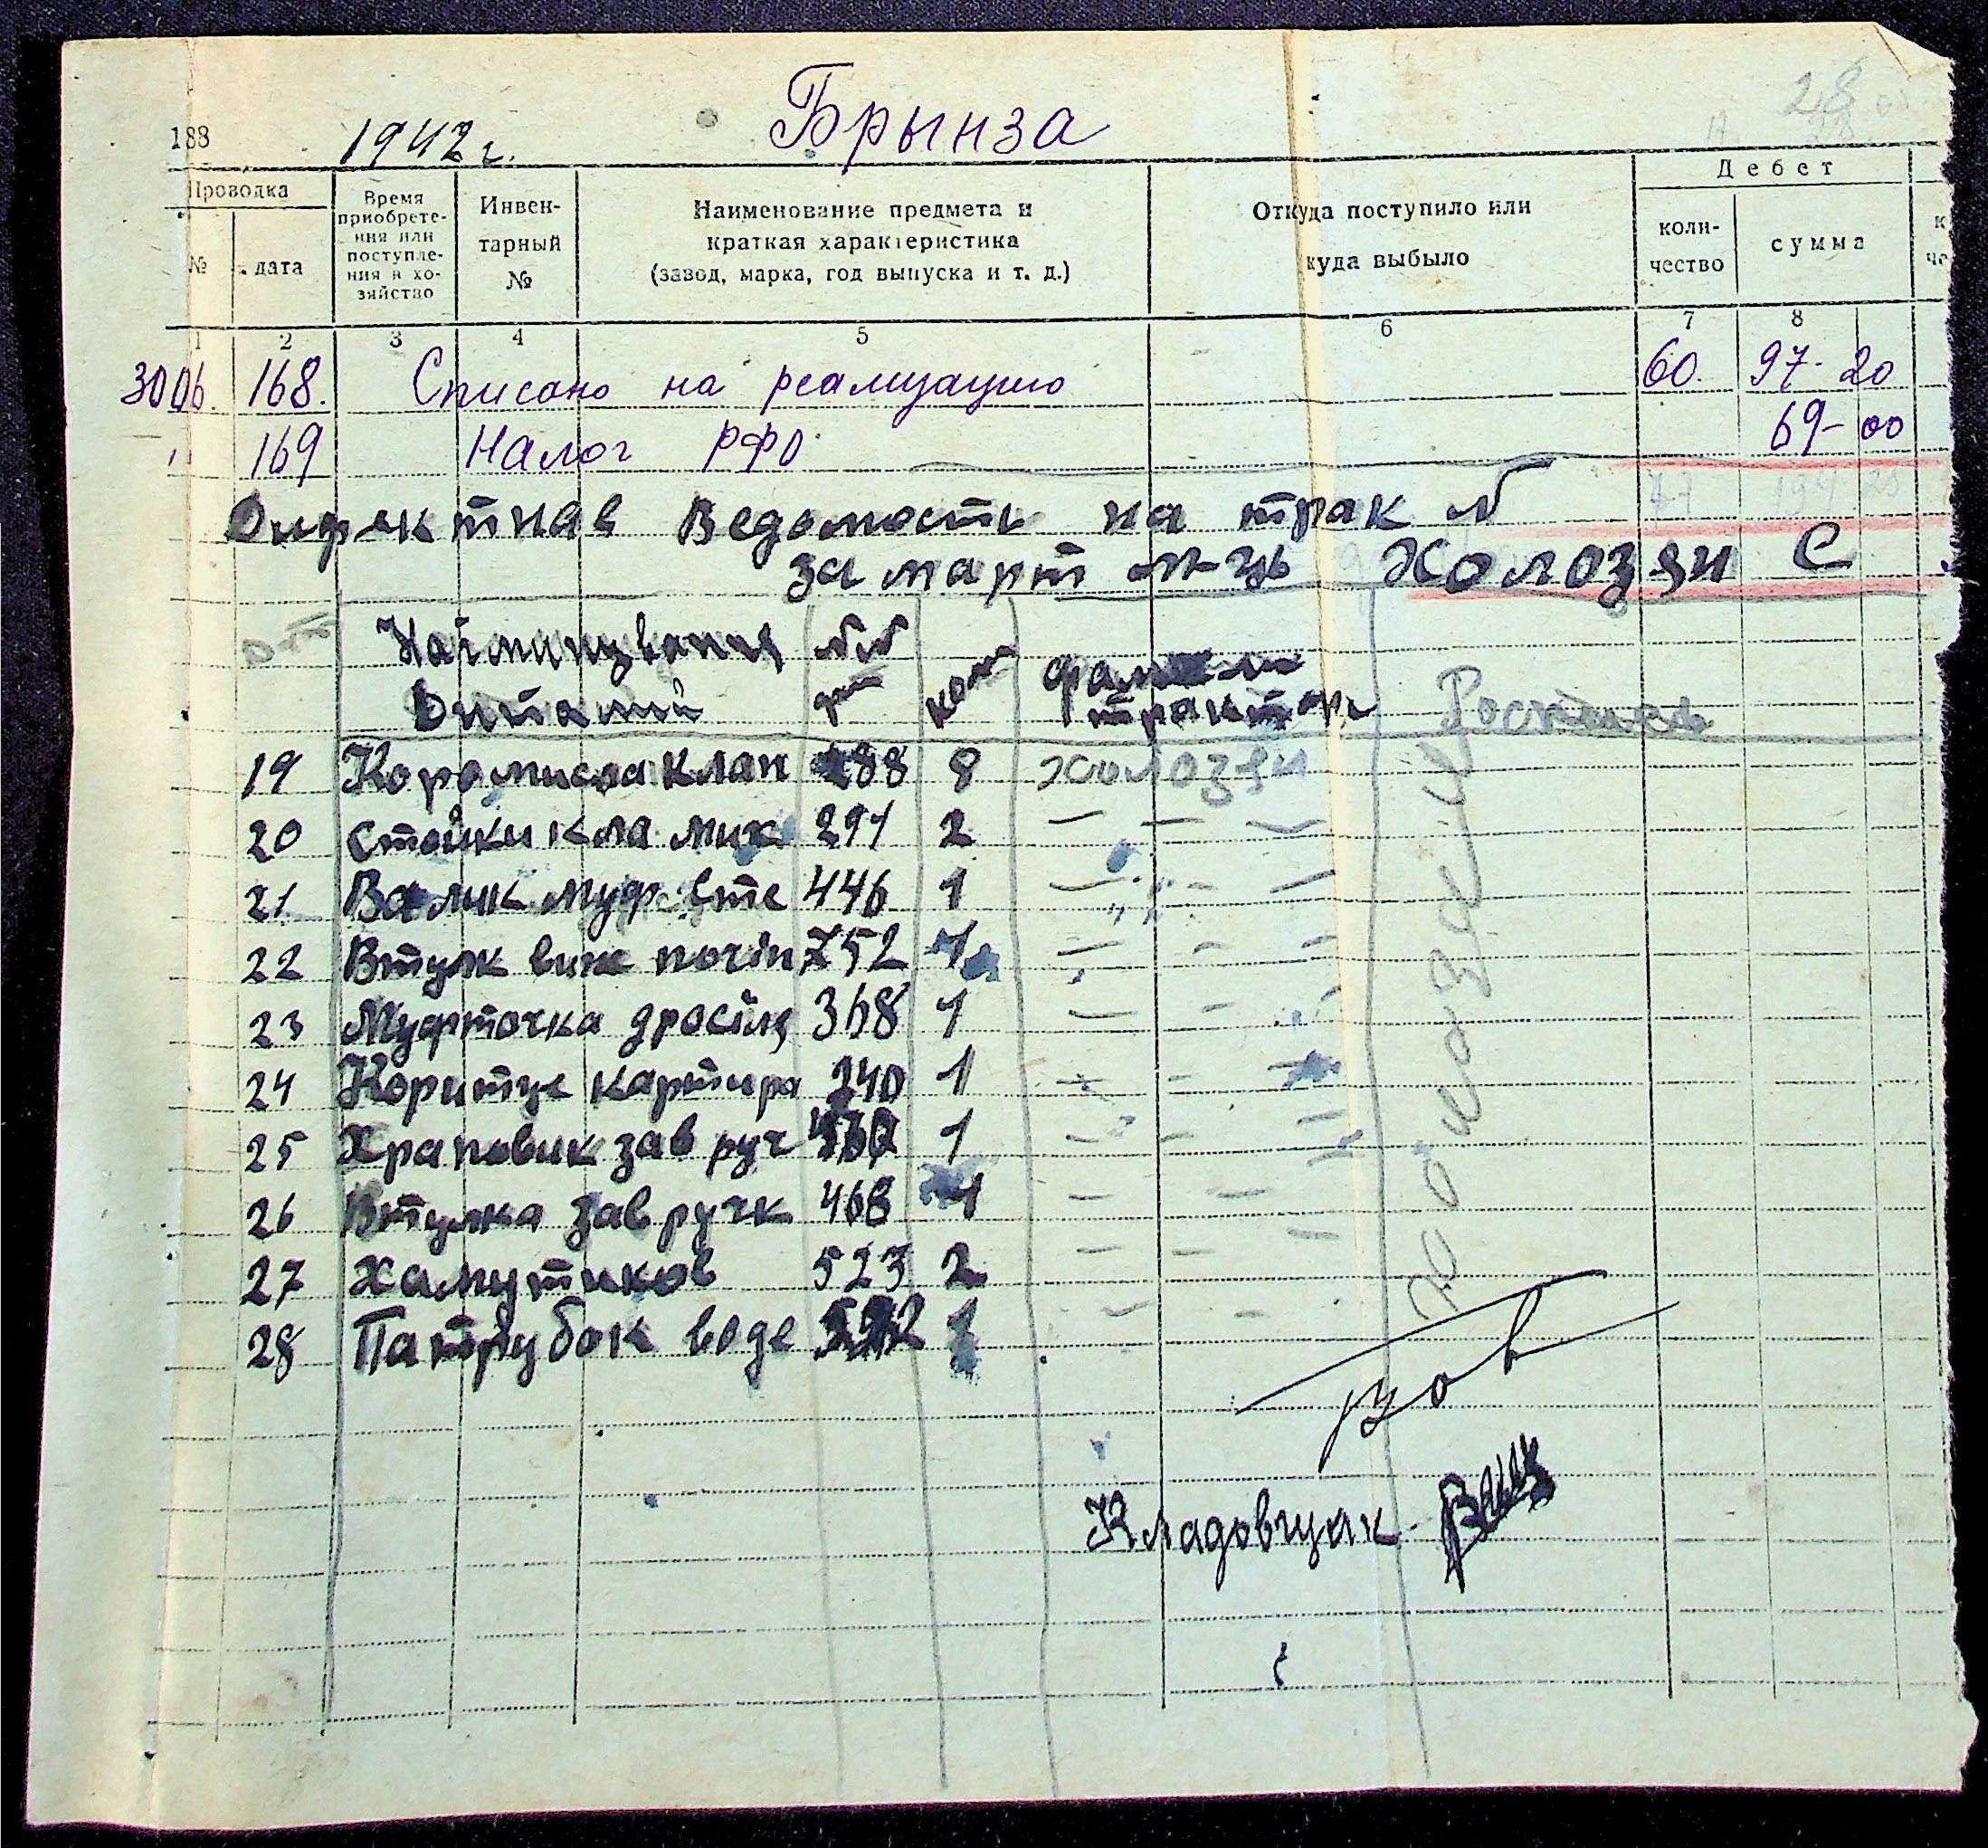 188 1942 г. Брынза 28
Проводка
№ дата
Время приобрете-ния или поступле-ния в хо-зяйство
Инвен-тарный №
Наименование предмета и краткая характеристика (завод, марка, год выпуска и т. д.)
Откуда поступило или куда выбыло
Дебет
коли-чество сумма
1 2 3 4 5 6 7 8
30 06. 168. Списано на реализацию 60. 97-20
" 169 Налог РФО 69-00
Дифектнав Ведомость на трак №
за март м-ць Холозян С
Дата Найминування Ditали №№ дет коли фамили тракторис Росписка
19 Коромисла клап 488 8 Холозян
20 Стойки кла мих 291 2 — — —
21 Валик муф сте 446 1 — " — —
22 Втулк виж почіп 752 1 — — —
23 Муфточка дросіля 368 1 — —
24 Коритце картира 240 1 — —
25 Храповик зав руч 1 — —
26 Втулка зав ручк 468 1 — —
27 Хамутиков 523 2 — —
28 Патрубок воде 1 — —
Холозян
Кладовщик